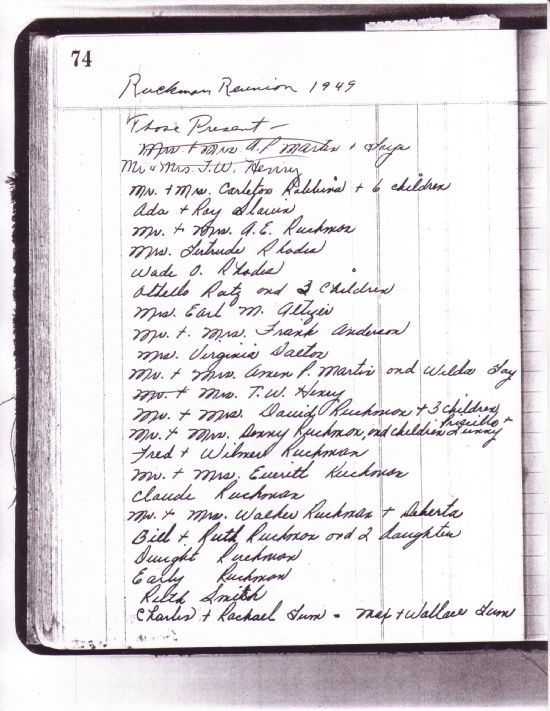 74
Ruckman Reunion 1949
Those Present —
Mr + Mrs. A.P. Martin + Faye
Mr & Mrs. T.W. Henry
Mr. + Mrs. Carleton Robbins + 6 children
Ada + Ray Slavin
Mr. + Mrs. A.E. Ruckman
Mrs. Gertrude Rhodes
Wade O. Rhodes
Othello Ratz and 3 Children
Mrs. Earl M.
Mr. + Mrs. Frank Anderson
Mrs. Virginia Dalton
Mr. + Mrs. Amen P. Martin and Wilda Fay
Mr. + Mrs. T.W. Henry
Mr. + Mrs. David Ruckman + 3 children
Mr. + Mrs. Donny Ruckman, and children Priscilla +
Fred + Wilmer Ruckman
Mr. + Mrs. Everitt Ruckman
Claude Ruckman
Mr. + Mrs. Walker Ruckman + Deberta
Bill + Ruth Ruckman and 2 daughters
Dwight Ruckman
Early Ruckman
Ruth Smith
Charles + Rachael - Max + Wallace